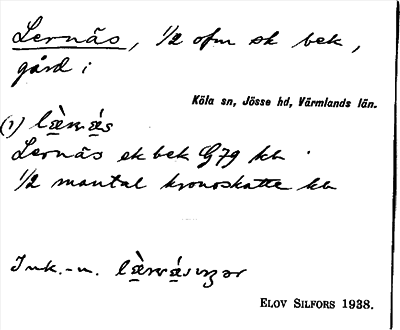 Lernäs, 1/2 ofm sk bek,
gård i
Köla sn, Jösse hd, Värmlands län.
(1) læ̀ɴǽs
Lernäs ek bek G79 kb
1/2 mantal kronoskatte kb
Ink.-n.
ELOV SILFORS 1938.